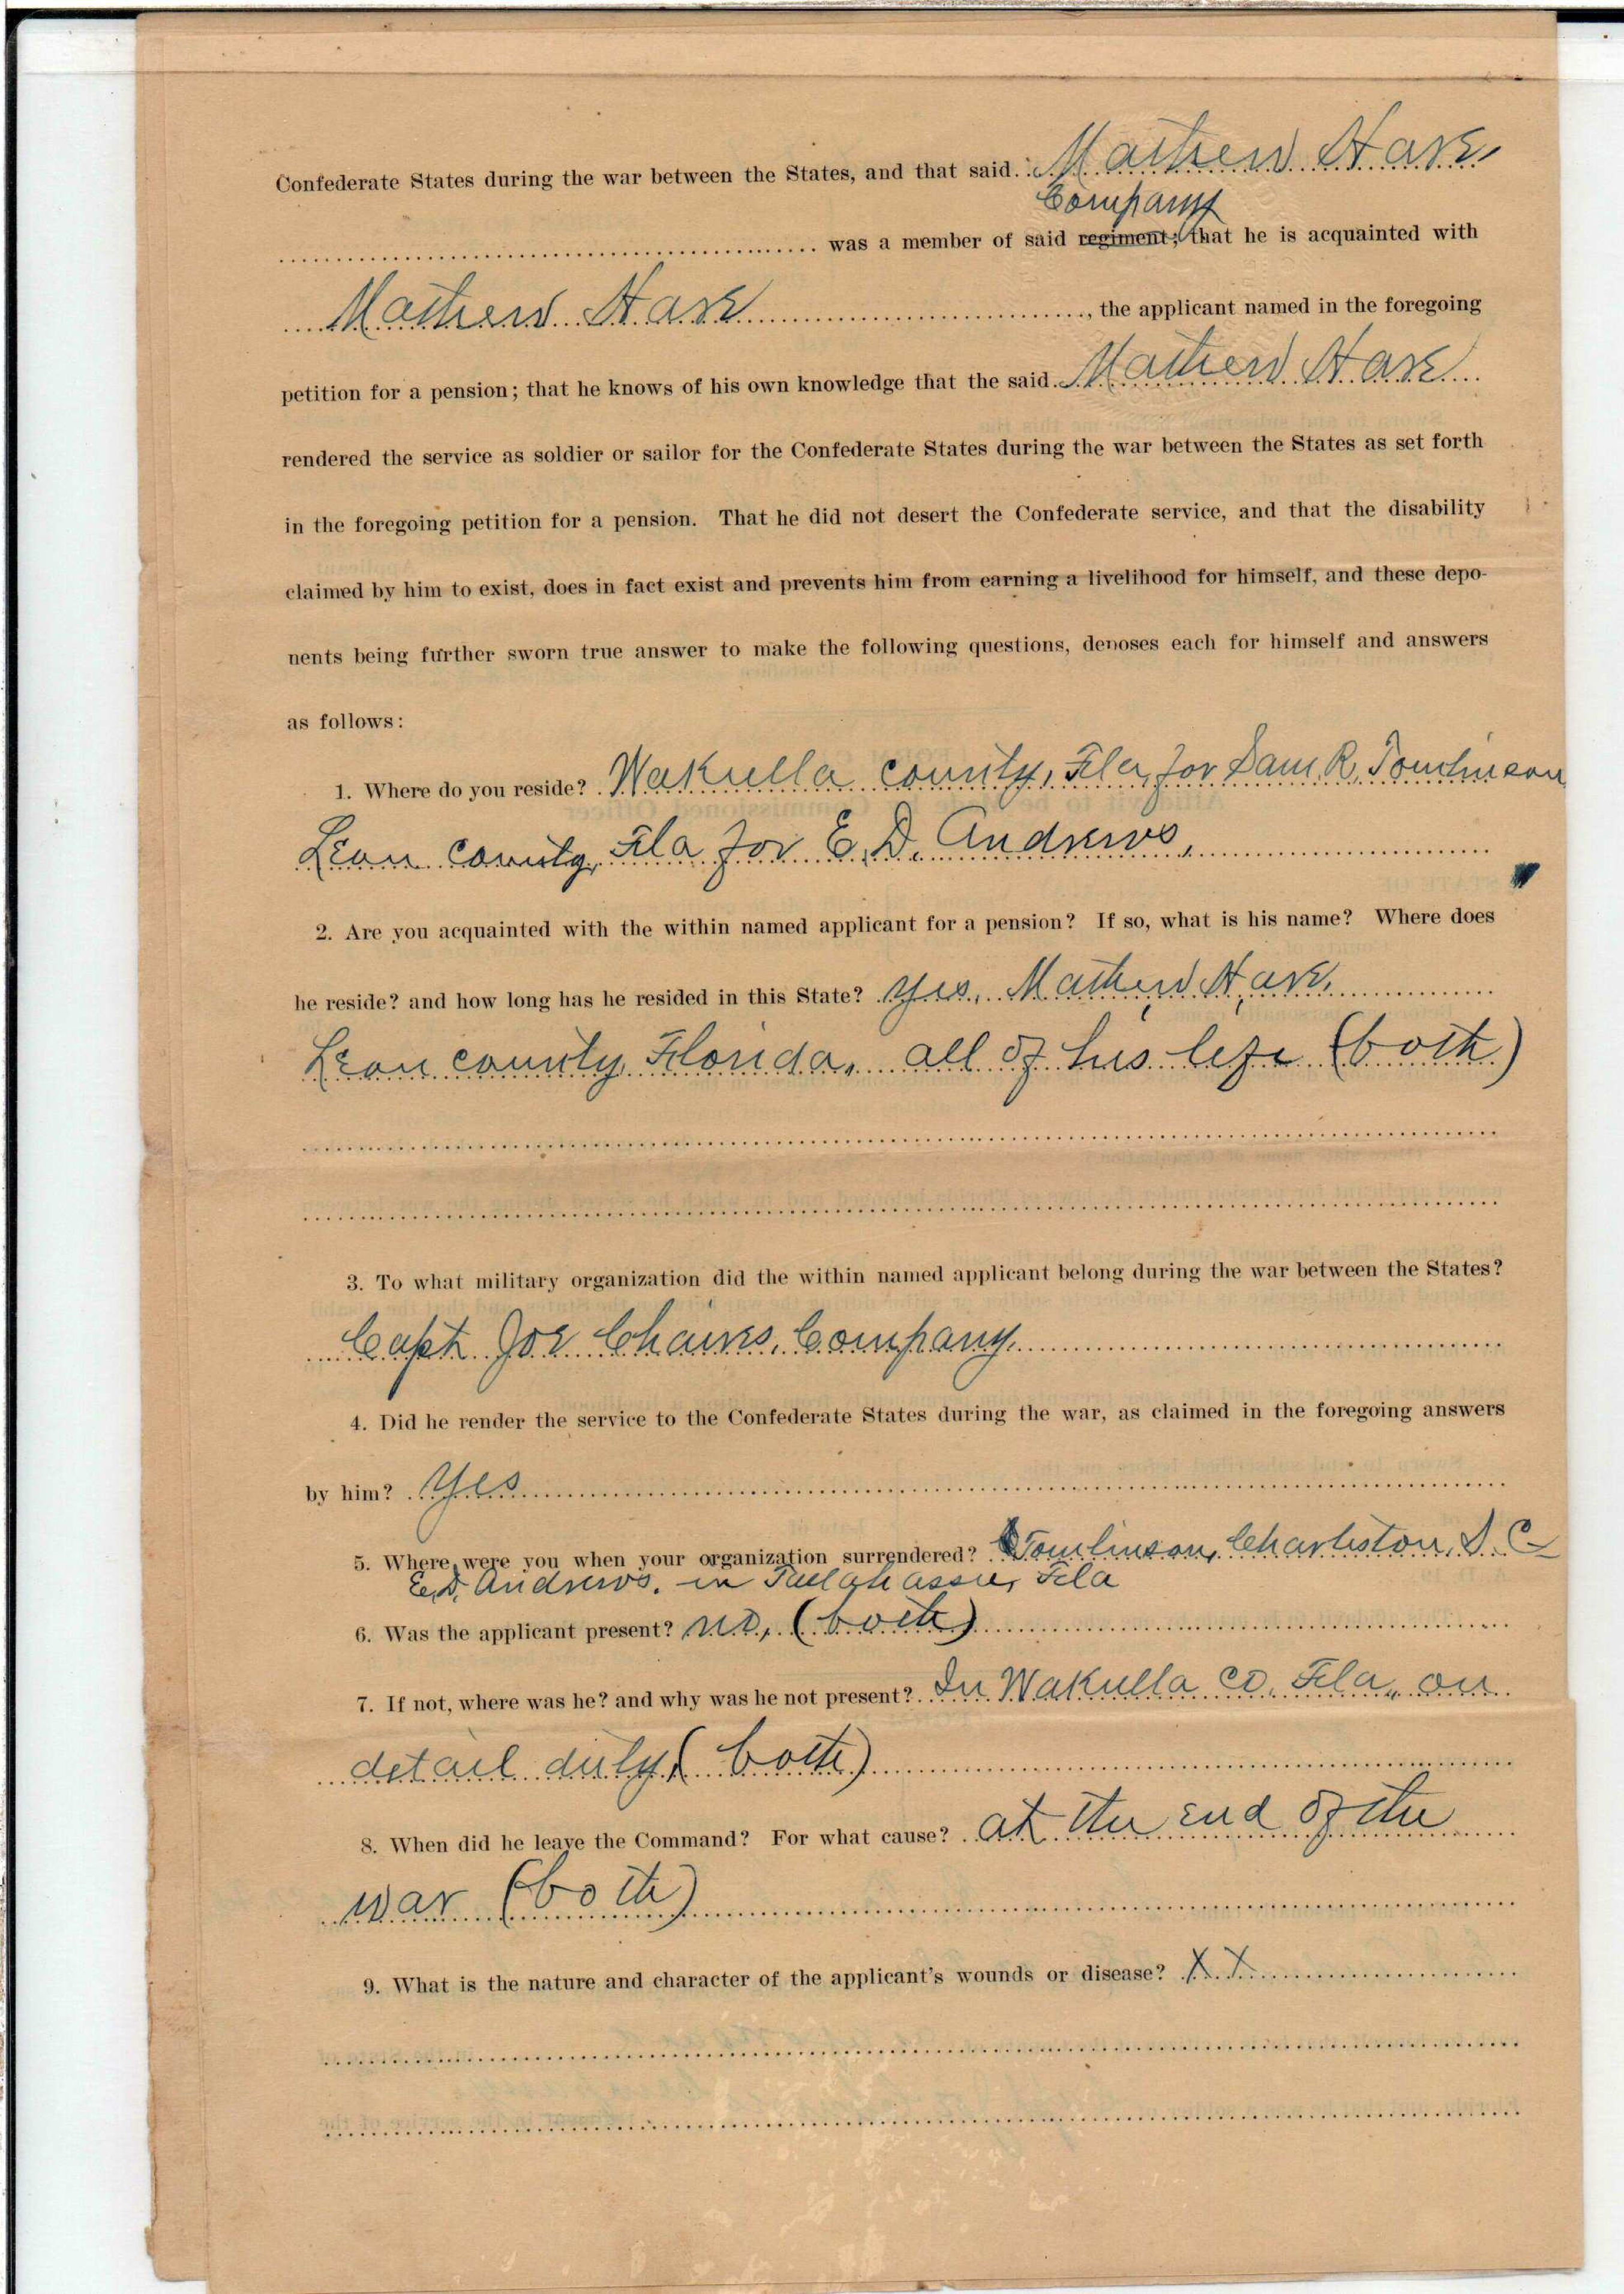 Confederate States during the war between the States, and that said Mathew Hare
Company
was a member of said regiment; that he is acquainted with
Mathew Hare, the applicant named in the foregoing
petition for a pension; that he knows of his own knowledge that the said Mathew Hare
rendered the service as soldier or sailor for the Confederate States during the war between the States as set forth
in the foregoing petition for a pension. That he did not desert the Confederate service, and that the disability
claimed by him to exist, does in fact exist and prevents him from earning a livelihood for himself, and these depo-
nents being further sworn true answer to make the following questions, denoses each for himself and answers
as follows:
1. Where do you reside? Wakulla county, Fla, for Sam R, Tomlinson
Leon county, Fla for E. D. Andrews,
2. Are you acquainted with the within named applicant for a pension? If so, what is his name? Where does
he reside? and how long has he resided in this State? Yes, Mathew Hare,
Leon county, Florida, all of his life (both)
3. To what military organization did the within named applicant belong during the war between the States?
Capt Joe Chaires, Company.
4. Did he render the service to the Confederate States during the war, as claimed in the foregoing answers
by him? Yes
5. Where were you when your organization surrendered? Tomlinson, Charleston, S. C
E.D. Andrews, in Tallahassee, Fla
6. Was the applicant present? No, (both)
7. If not, where was he? and why was he not present? In Wakulla co, Fla, on
detail duty, (both)
8. When did he leave the Command? For what cause? at the end of the
war (both)
9. What is the nature and character of the applicant's wounds or disease? X X